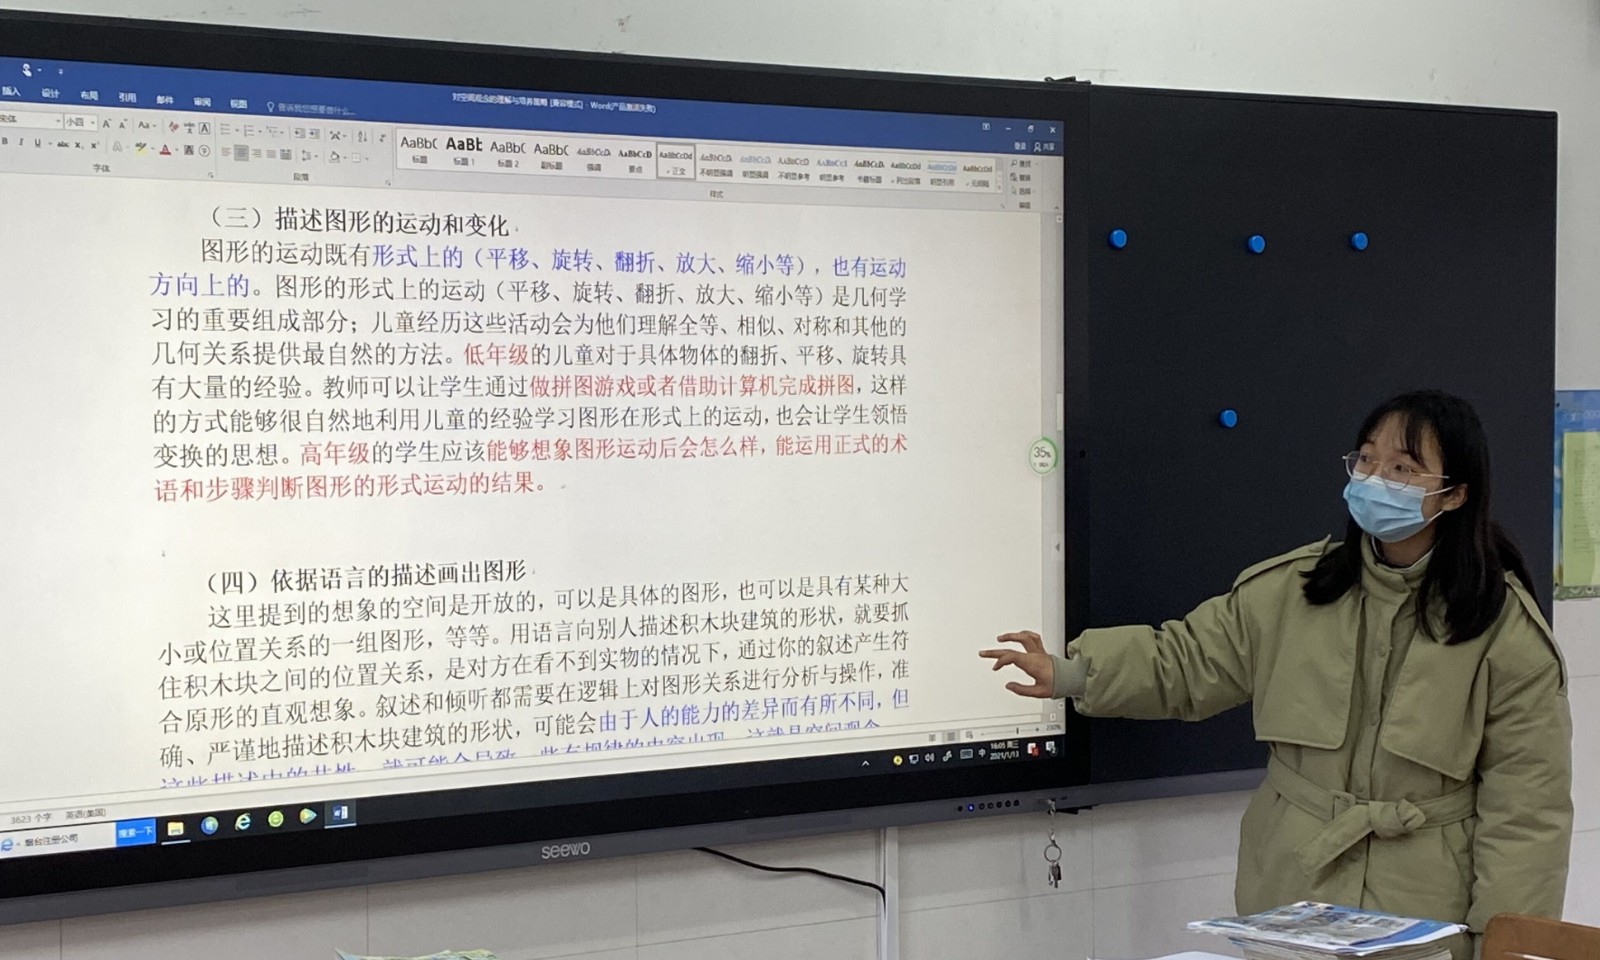 对空间观念的理解与培养策略 [兼容模式] - Word(产品激活失败)
插入 设计 布局 引用 邮件 审阅 视图 告诉我您想要做什么...
登录 共享
宋体 小四
AaBbC AaBb AaBbC AaBbC AaBbCcD AaBbCcD AaBbCcDd
标题 标题 1 标题 2 副标题 强调 要点 正文 不明显强调 明显强调 不明显参考 明显参考 书籍标题 列出段落 明显引用 无间隔
查找
替换
选择
字体 段落 样式 编辑
（三）描述图形的运动和变化
图形的运动既有形式上的（平移、旋转、翻折、放大、缩小等），也有运动
方向上的。图形的形式上的运动（平移、旋转、翻折、放大、缩小等）是几何学
习的重要组成部分；儿童经历这些活动会为他们理解全等、相似、对称和其他的
几何关系提供最自然的方法。低年级的儿童对于具体物体的翻折、平移、旋转具
有大量的经验。教师可以让学生通过做拼图游戏或者借助计算机完成拼图，这样
的方式能够很自然地利用儿童的经验学习图形在形式上的运动，也会让学生领悟
变换的思想。高年级的学生应该能够想象图形运动后会怎么样，能运用正式的术
语和步骤判断图形的形式运动的结果。
35%
（四）依据语言的描述画出图形
这里提到的想象的空间是开放的，可以是具体的图形，也可以是具有某种大
小或位置关系的一组图形，等等。用语言向别人描述积木块建筑的形状，就要抓
住积木块之间的位置关系，是对方在看不到实物的情况下，通过你的叙述产生符
合原形的直观想象。叙述和倾听都需要在逻辑上对图形关系进行分析与操作，准
确、严谨地描述积木块建筑的形状，可能会由于人的能力的差异而有所不同，但
3623 个字 英语(美国)
烟台注册公司 搜索一下
中 16:05 周三
2021/1/13
seewo